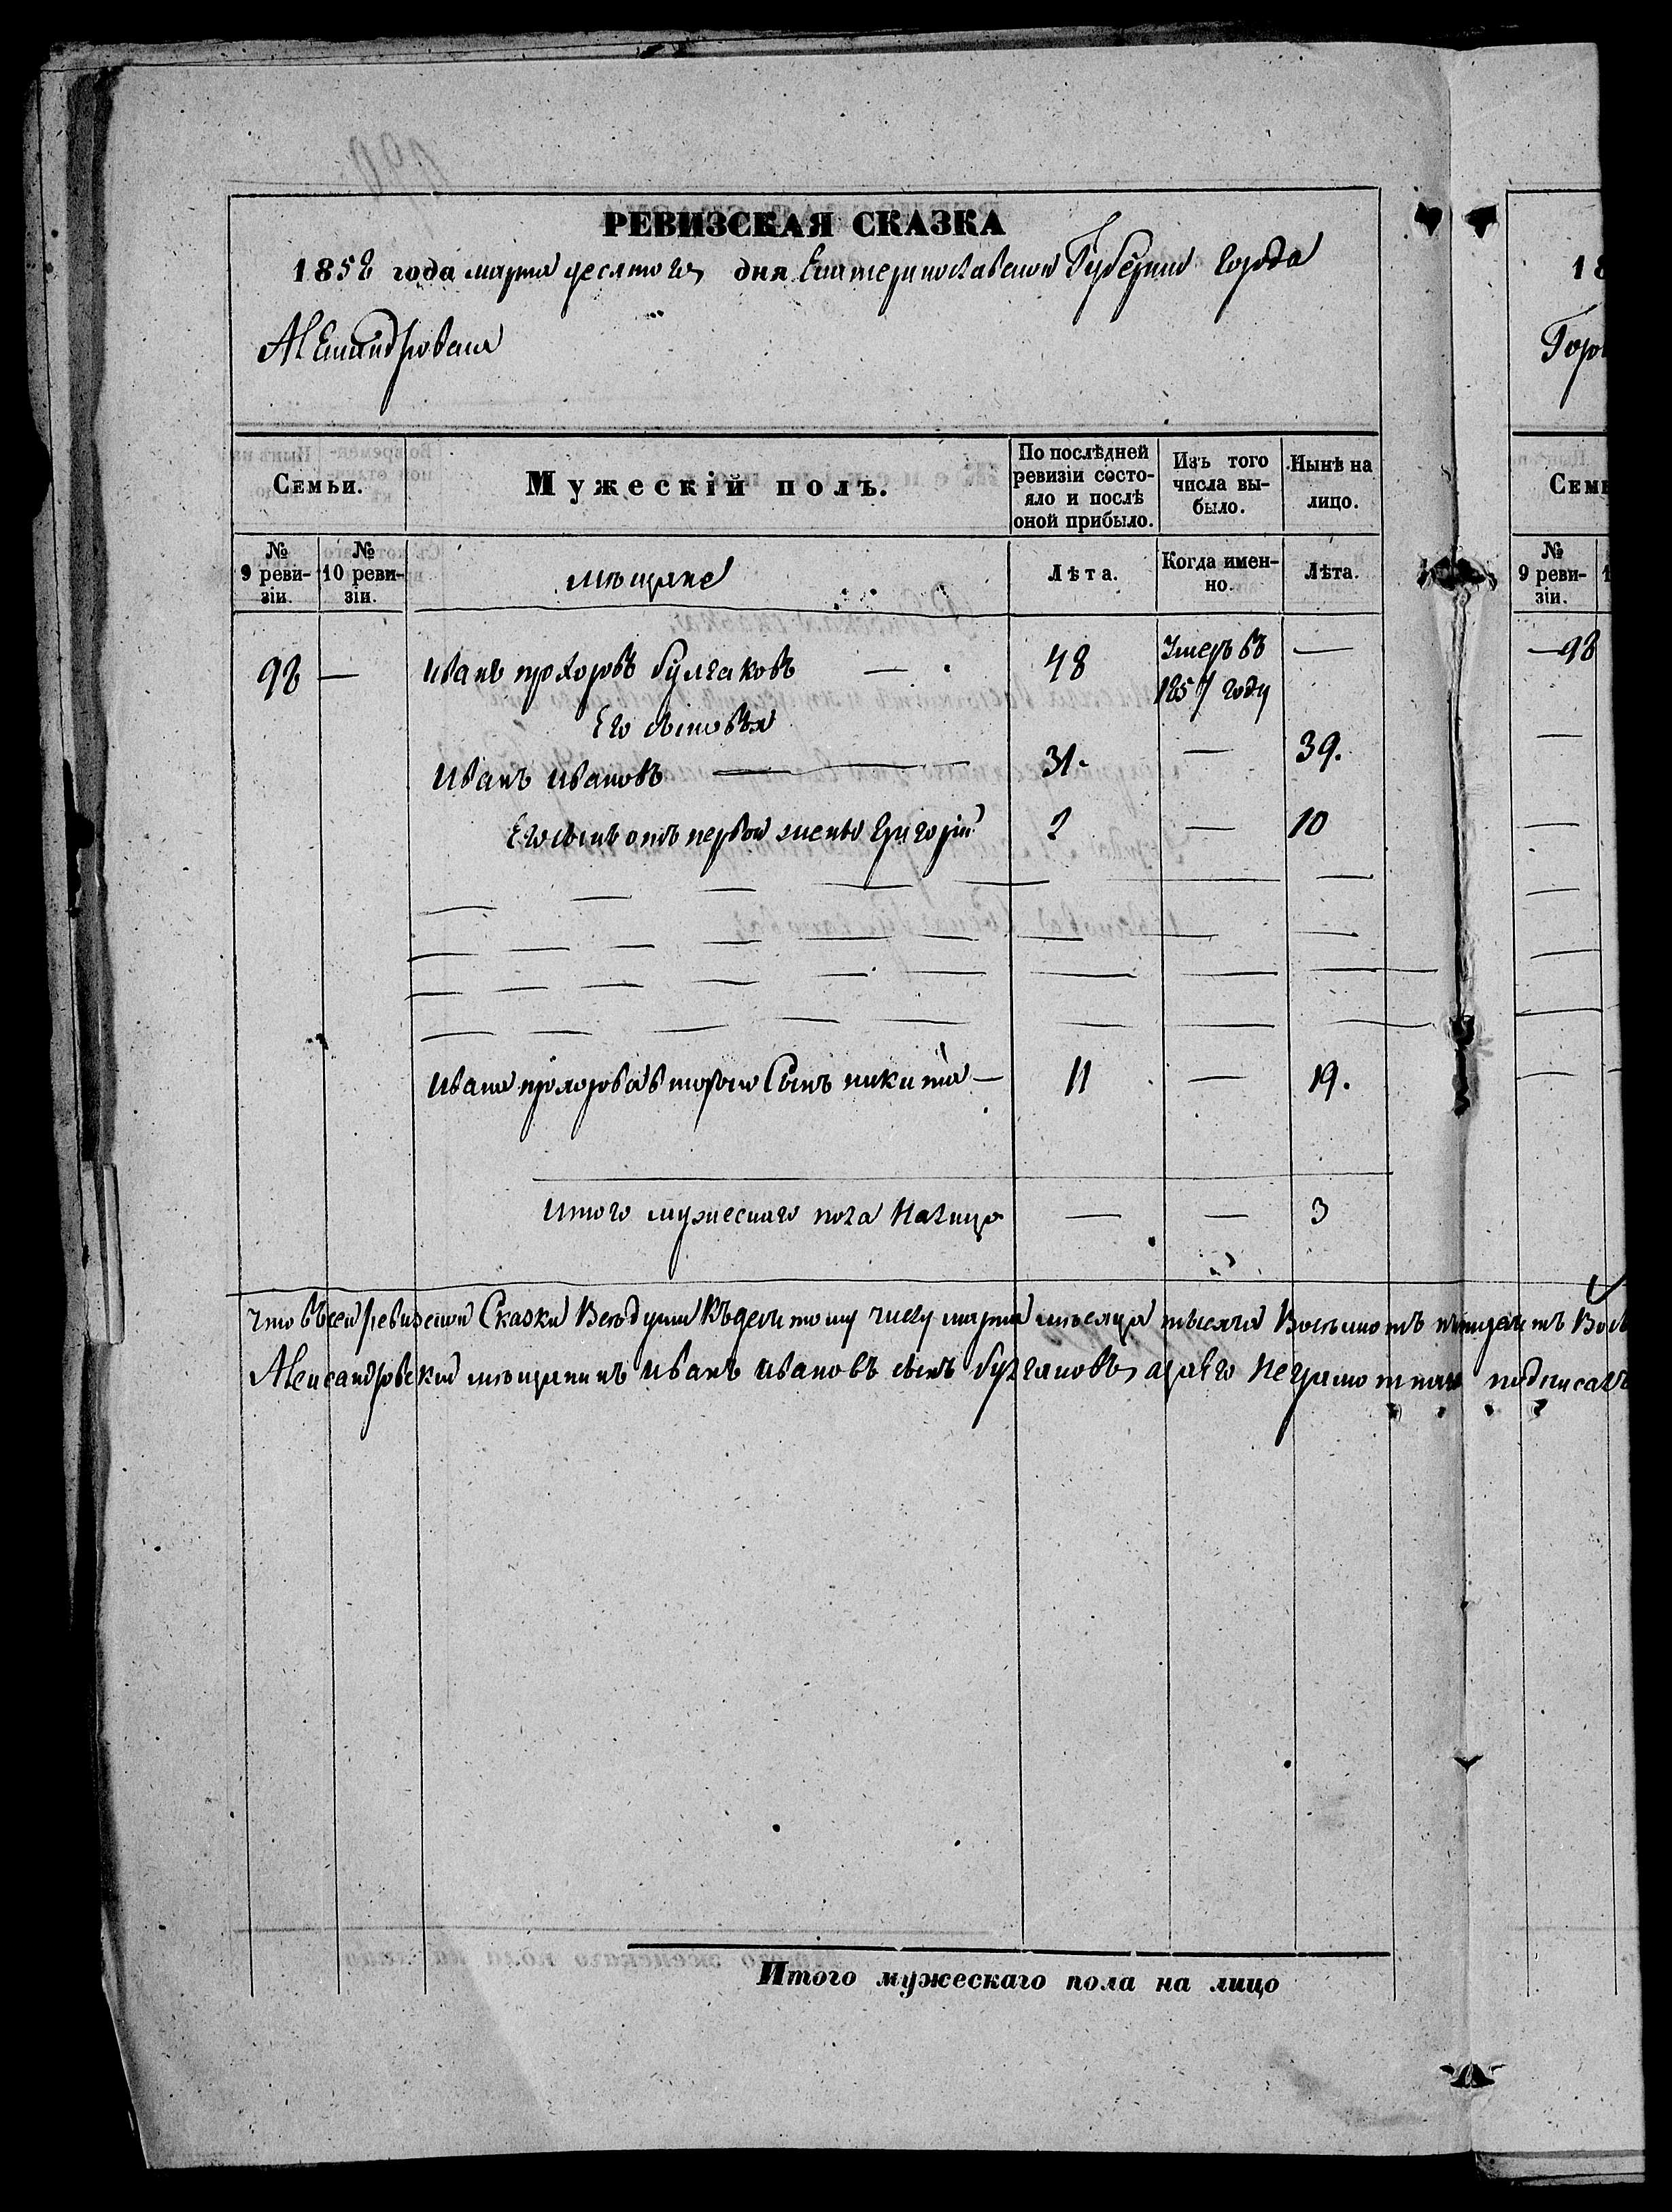 РЕВИЗСКАЯ СКАЗКА
1858 года марта десятого дня Екатеринославской Губерніи города
Александровска
Семьи.
Мужескій полъ.
По послѣдней ревизіи состо-
яло и послѣ
оной прибыло.
Изъ того
числа вы-
было.
Нынѣ на
лицо.
№
9 реви-
зіи.
№
10 реви-
зіи.
мѣщане
Лѣта.
Когда имен-
но.
Лѣта.
98 — Иванъ прохоровъ булгаковъ — 48 Умеръ въ 1857 году —
Его сыновья
Иванъ Ивановъ — 31. — 39.
Его сынъ отъ первой жены Григорій 2 — 10
Ивана прохорова второй Сынъ никита — 11 — 19.
Итого мужескаго пола Налицо — — 3
что въ сей ревизской Сказки
марта мѣсяца тысяча Восьмсотъ пятдесятъ
Александровскій мѣщанинъ Иванъ Ивановъ сынъ булгаковъ, а за его неграмотного подписалъ
Итого мужескаго пола на лицо
18
Горо
Семь
№
9 реви-
зіи.
98